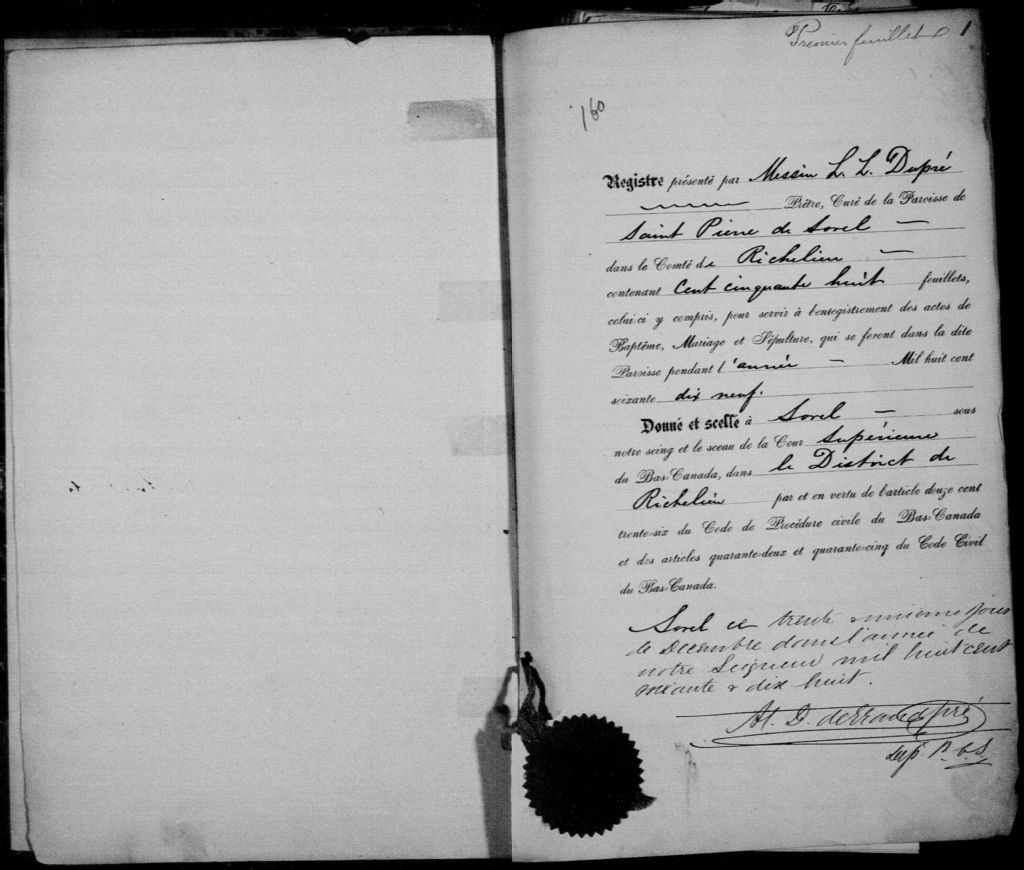 Premier feuillet 1
160
Registre présenté par Messire L. L. Dupré
Prêtre, Curé de la Paroisse de
Saint Pierre de Sorel —
dans le Comté de Richelieu —
contenant Cent cinquante huit feuillets,
celui-ci y compris, pour servir à l'enregistrement des actes de
Baptême, Mariage et Sépulture, qui se feront dans la dite
Paroisse pendant l'année — Mil huit cent
soixante dix neuf.
Donné et scellé à Sorel — sous
notre seing et le sceau de la Cour Supérieure
du Bas-Canada, dans le District de
Richelieu par et en vertu de l'article douze cent
trente-six du Code de Procédure civile du Bas-Canada
et des articles quarante-deux et quarante-cinq du Code Civil
du Bas-Canada.
Sorel ce trente & unieme jour
de Decembre dans l'année de
notre Seigneur mil huit cent
soixante & dix huit.
D.